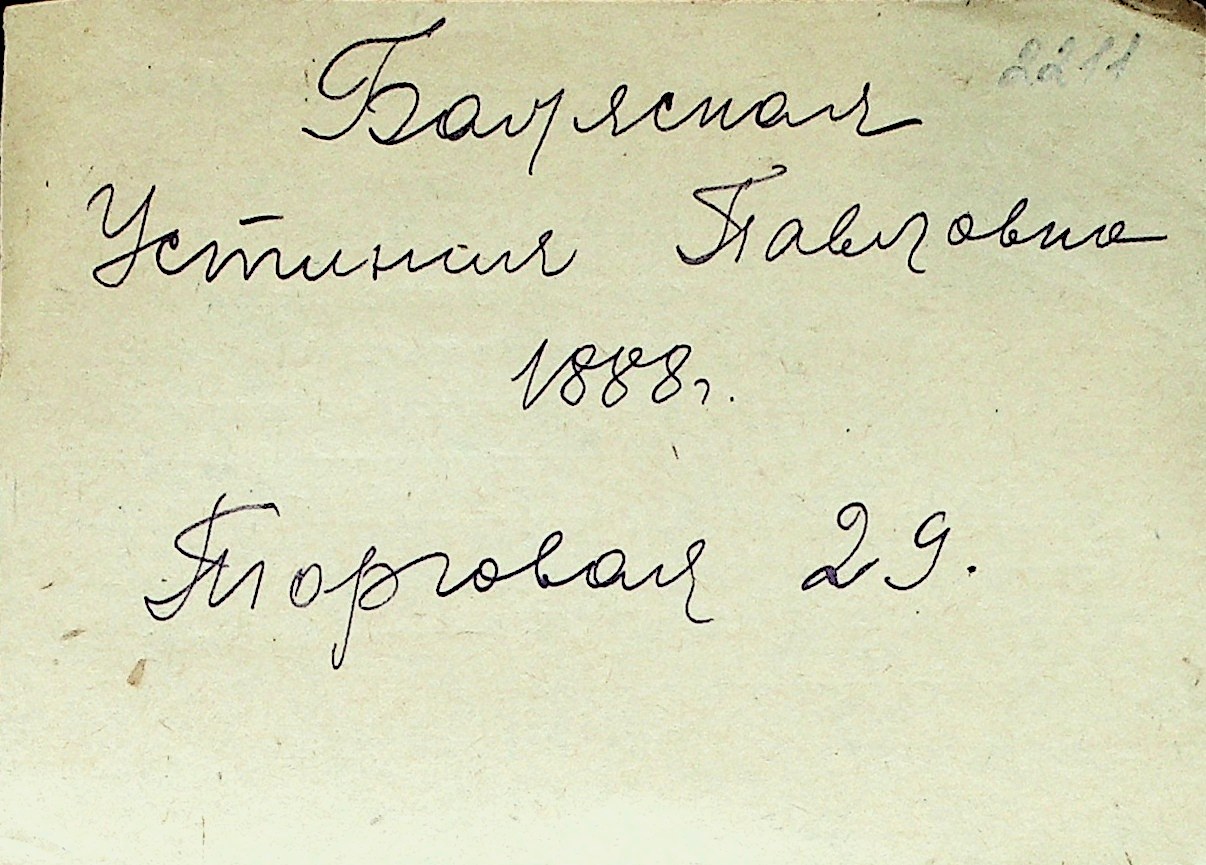 2211
Балясная
Устиния Павловна
1888г.
Торговая 29.